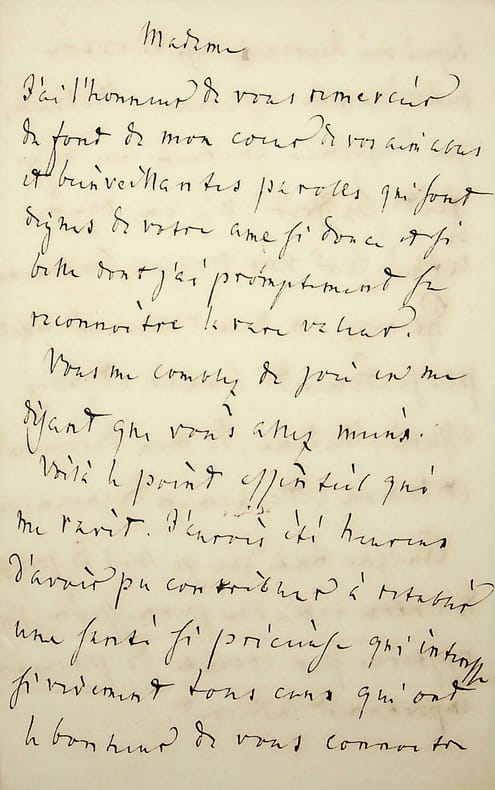 Madame
J'ai l'honneur de vous remercier
du fond de mon coeur de vos aimables
et bienveillantes paroles qui sont
dignes de votre ame si douce et si
belle dont j'ai promptement su
reconnoître la rare valeur.
Vous me comblez de joie en me
disant que vous allez mieux.
Voilà le point essentiel qui
me ravit. J'aurois été heureux
d'avoir pu contribuer à rétablir
une santé si précieuse qui intéresse
si vivement tous ceux qui ont
le bonheur de vous connoitre